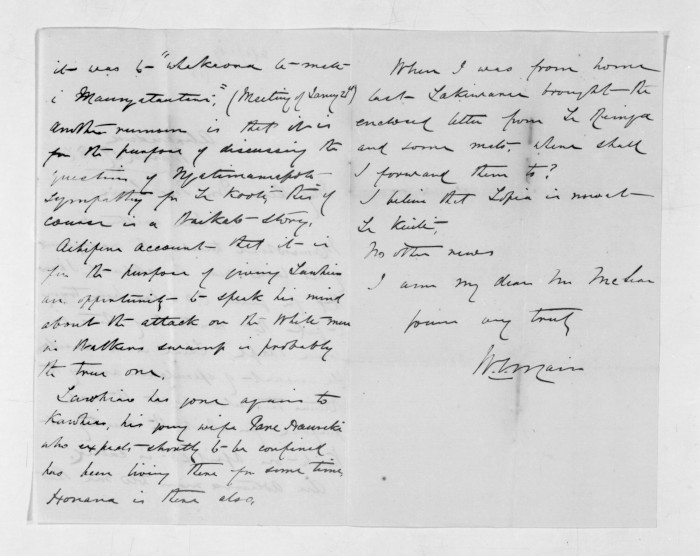 it was to "whakaona te mate
i Maungatautari," (Meeting of Janry 21st)
another rumour is that it is
for the purpose of discussing the
question of Ngatimaniapoto
sympathy for Te Kooti, this of
course is a Waikato story.
Aihipene account that it is
for the purpose of giving Tawhiao
an opportunity to speak his mind
about the attack on the white men
in Walkers swamp is probably
the true one.
Tawhiao has gone again to
Kawhia, his young wife Pare Hauraki
who expects shortly to be confined
has been living there for some time,
Honana is there also.
When I was from home
last Takiwaru brought the
enclosed letter from Te Reinga
and some mats, where shall
I forward them to?
I believe that Topia is now at
Te Kuiti,
No other news
I am my dear Mr McLean
yours very truly
W. G. Mair